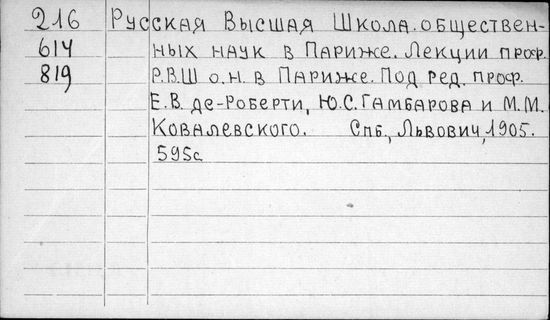 216 Русская Высшая Школа обществен
614 ных наук в Париже. Лекции проф.
819 Р.В.Ш о.н. в Париже. Под ред. проф.
Е.В. де-Роберти, Ю.С. Гамбарова и М.М.
Ковалевского. Спб., Львович, 1905.
595с